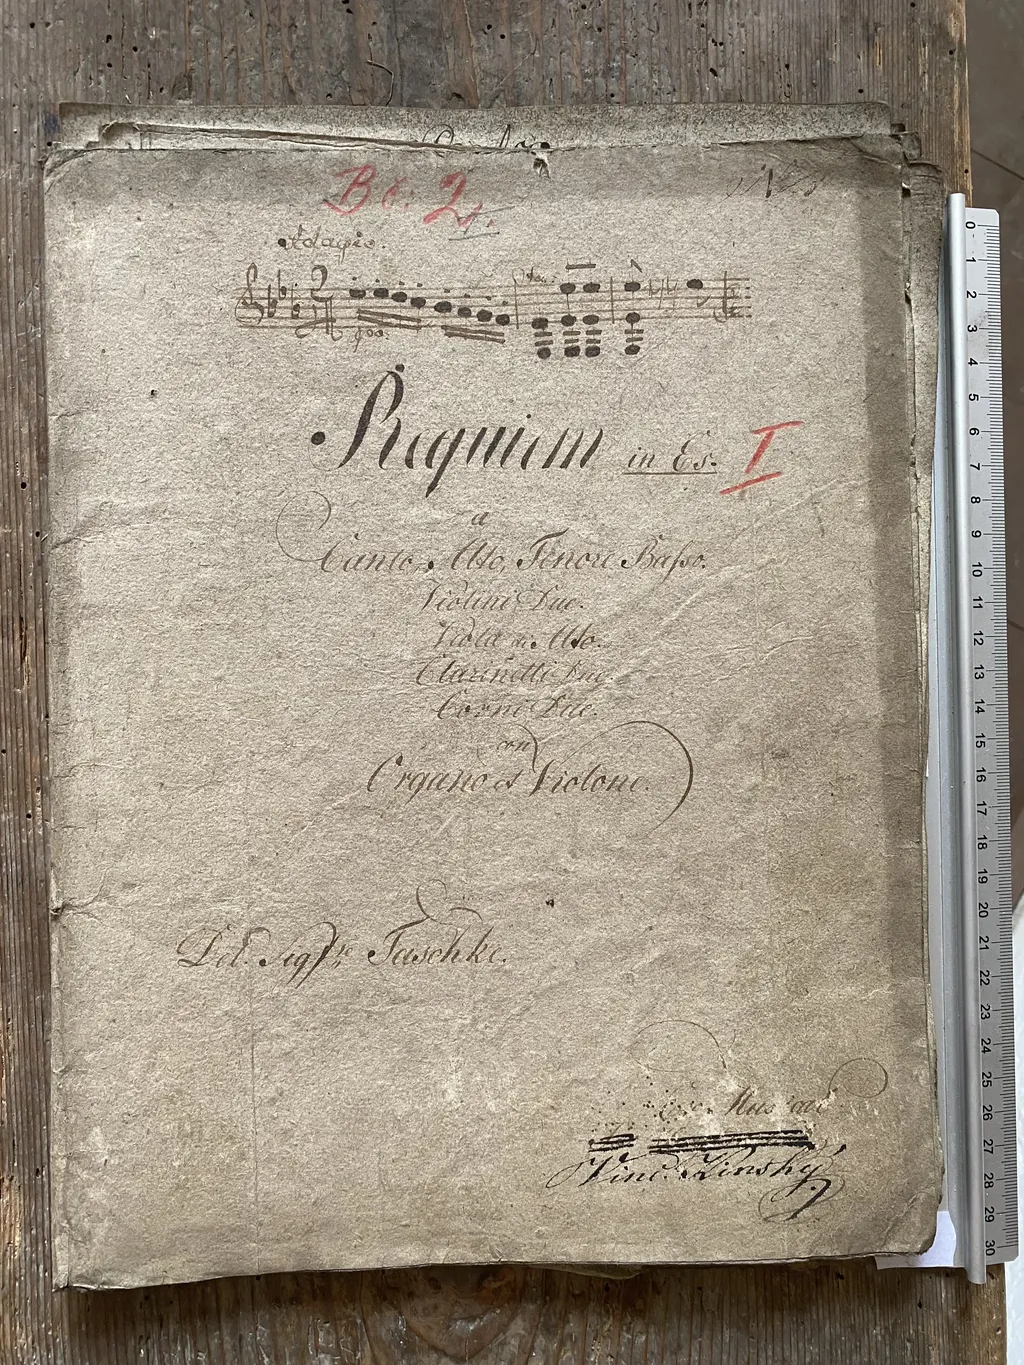 Bč: 2.
Adagio.
Requiem in Es. I
a
Canto, Alto, Tenore Baſso.
Violini Due.
Viola Alto.
Clarinetti Due.
Corni Due.
con
Organo et Violone.
Del Sigre Taschke.
Musical
Vinc. Zinský
0 1 2 3 4 5 6 7 8 9 10 11 12 13 14 15 16 17 18 19 20 21 22 23 24 25 26 27 28 29 30